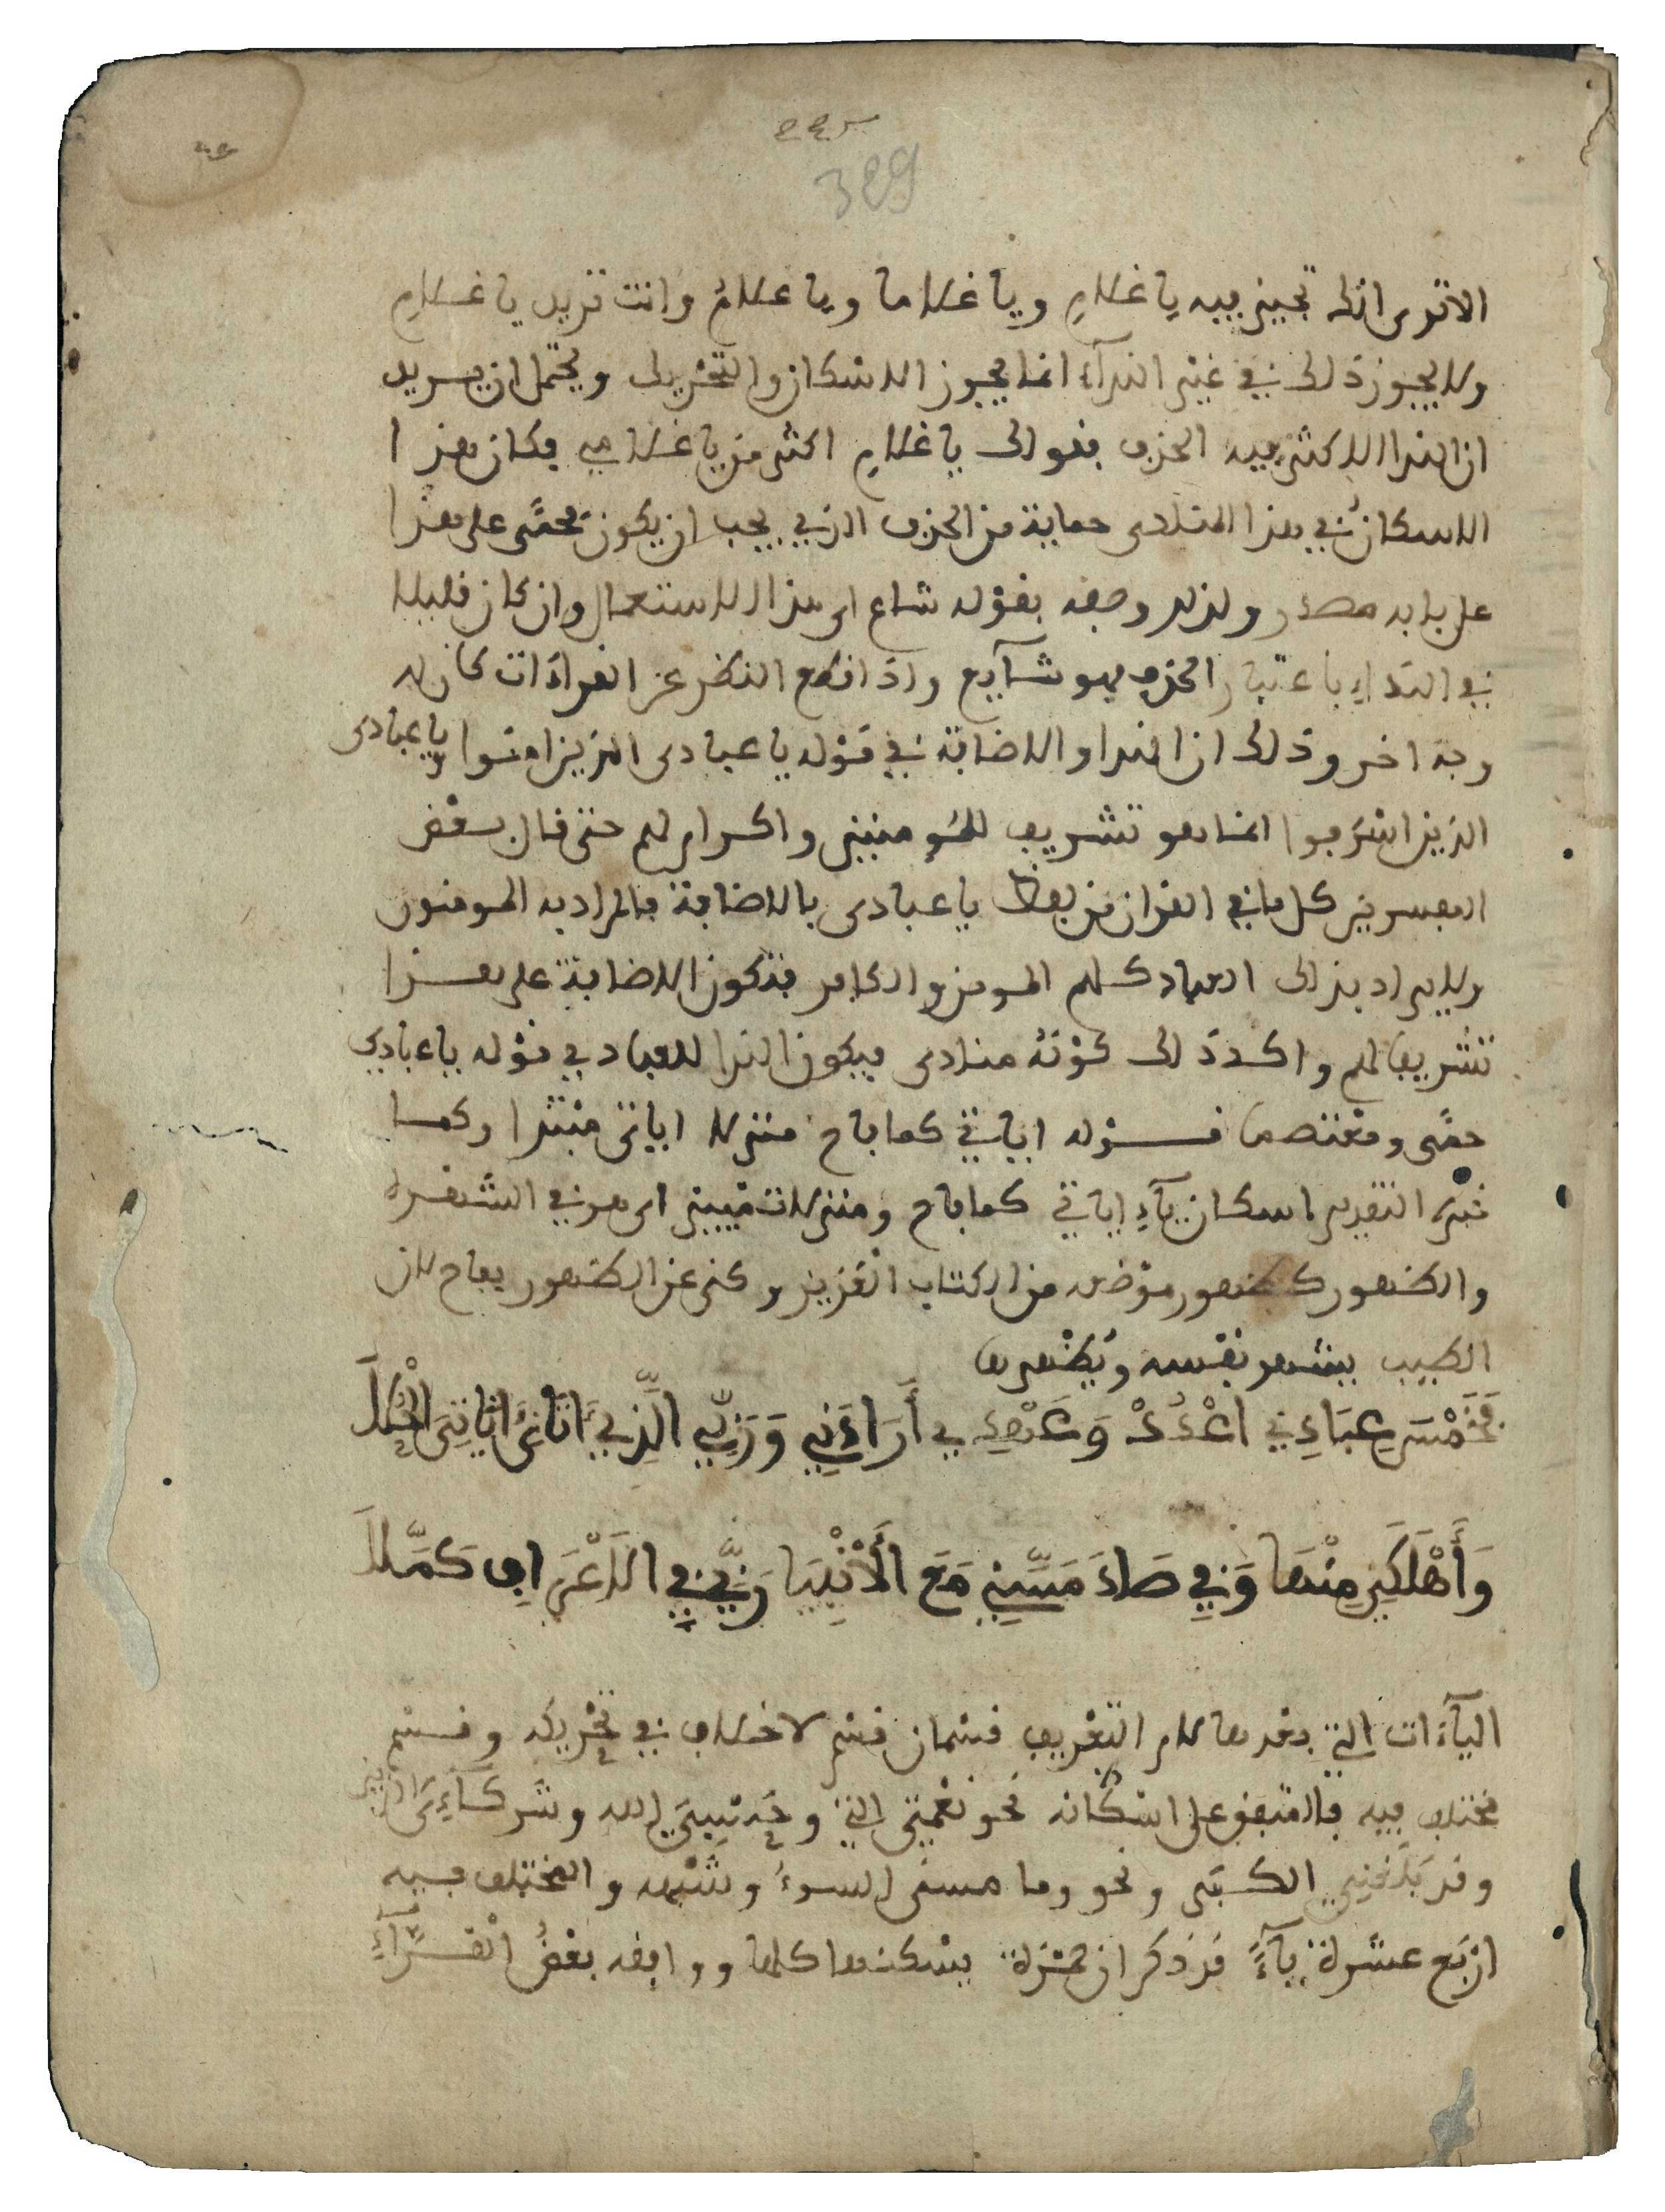 389
الا ترى انك تجيز فيه يا غلام ويا غلاما ويا غلامُ وانت تريد يا غلام
ولا يجوز ذلك في غير الندآء انما يجوز الاسكان والتحريك ويحتمل ان يريد
ان الندا الاكثر فيه الحذف فقولك يا غلام اكثر من يا غلامي فكان هذا
الاسكان في هذا المنادى حماية من الحذف الذي يجب ان يكون حمى على هذا
على بابه مصدر ولذلك وصفه بقوله شاع اي هذا الاستعمال وان كان قليلا
في النداء باعتبار الحذف فهو شآيع واذا قطع النظر عن القراءات كان له
وجه اخر وذلك ان الندا والاضافة في قوله يا عبادى الذين امنوا ويا عبادى
الذين اسرفوا انما هو تشريف للمؤمنين واكرام لهم حتى قال بعض
المفسرين كل ما في القران من لفظ يا عبادى بالاضافة فالمراد به المومنون
ولا يراد بذلك العباد كلهم المومن والكافر فتكون الاضافة على هذا
تشريفا لهم واكد ذلك كونه منادى فيكون الندا للعباد في قوله يا عبادي
حمى ومعتصما قوله اياتي كما فاح منزلا اياتى مبتدا وكما
خبره التقدير اسكان يآء اياتي كما فاح ومنزلا تمييز اي هو في الشهرة
والظهور كظهور موضعه من الكتاب العزيز وكنى عن الظهور بفاح لان
الطيب يشهر نفسه ويظهرها
فَخَمْسَ عِبَادِي اعْدُدْ وَعَهْدِي أَرَادَنِي وَرَبِّي الَّذِي ءَاتَانِيَ ايَاتِيَ الْحُلَا
وَأَهْلَكَنِي مِنْهَا وَفِي صَادَ مَسَّنِي مَعَ الْأَنْبِيَا رَبِّي فِي الَاعْرَافِ كَمَّلَا
اليآءات التي بعدها لام التعريف قسمان قسم لا خلاف في تحريكه وقسم
مختلف فيه فالمتفق على اسكانه نحو نعمتي التي وحسبي الله وشركآءى الذين
وقد بلغني الكبر ونحو وما مسني السوء وشبهه والمختلف فيه
اربع عشرة يآءً قد ذكر ان حمزة يسكنها كلها ووافقه بعضُ القرّآءِ